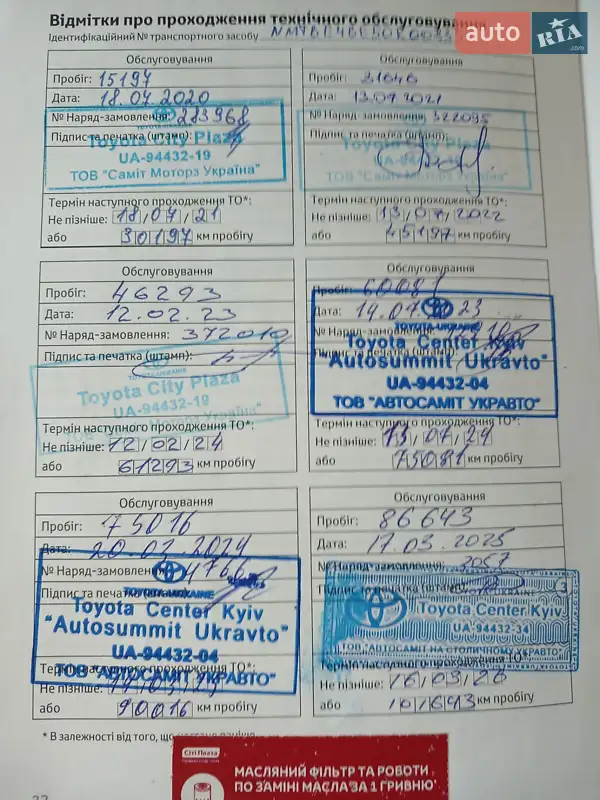 Відмітки про проходження технічного обслуговування
auto RIA.com
Ідентифікаційний № транспортного засобу
Обслуговування
Пробіг: 15197
Дата: 18.07.2020
№ Наряд-замовлення: 283968
Підпис та печатка (штамп):
Toyota City Plaza
UA-94432-19
ТОВ "Саміт Моторз Україна"
Термін наступного проходження ТО*:
Не пізніше: 18/07/21
або 30197 км пробігу
Обслуговування
Пробіг: 31646
Дата: 13.07.2021
№ Наряд-замовлення: 322095
Підпис та печатка (штамп):
Toyota City Plaza
ТОВ "Саміт Моторз Україна"
Термін наступного проходження ТО*:
Не пізніше: 13/07/2022
або 45197 км пробігу
Обслуговування
Пробіг: 46293
Дата: 12.02.23
№ Наряд-замовлення: 372010
Підпис та печатка (штамп):
Toyota City Plaza
UA-94432-19
ТОВ "Саміт Моторз Україна"
Термін наступного проходження ТО*:
Не пізніше: 12/02/24
або 61293 км пробігу
Обслуговування
Пробіг: 60081
Дата: 14.07.2023
№ Наряд-замовлення:
TOYOTA-UKRAINE
Підпис та печатка
Toyota Center Kyiv
"Autosummit Ukravto"
UA-94432-04
ТОВ "АВТОСАМІТ УКРАВТО"
Термін наступного проходження ТО*:
Не пізніше: 13/07/24
або 75081 км пробігу
Обслуговування
Пробіг: 75016
Дата: 20.03.2024
№ Наряд-замовлення:
Підпис та печатка
TOYOTA-UKRAINE
Toyota Center Kyiv
"Autosummit Ukravto"
UA-94432-04
ТОВ "АВТОСАМІТ УКРАВТО"
Термін наступного проходження ТО*:
Не пізніше:
або 90016 км пробігу
Обслуговування
Пробіг: 86643
Дата: 17.03.2025
№ Наряд-замовлення: 3057
Підпис та печатка (штамп):
Toyota Center Kyiv
UA-94432-34
ТОВ "АВТОСАМІТ НА СТОЛИЧНОМУ УКРАВТО"
Термін наступного проходження ТО
Не пізніше: 16/03/26
або 101643 км пробігу
* В залежності від того, що настане раніше
Сіті Плаза
МАСЛЯНИЙ ФІЛЬТР ТА РОБОТИ
ПО ЗАМІНІ МАСЛА ЗА 1 ГРИВНЮ*